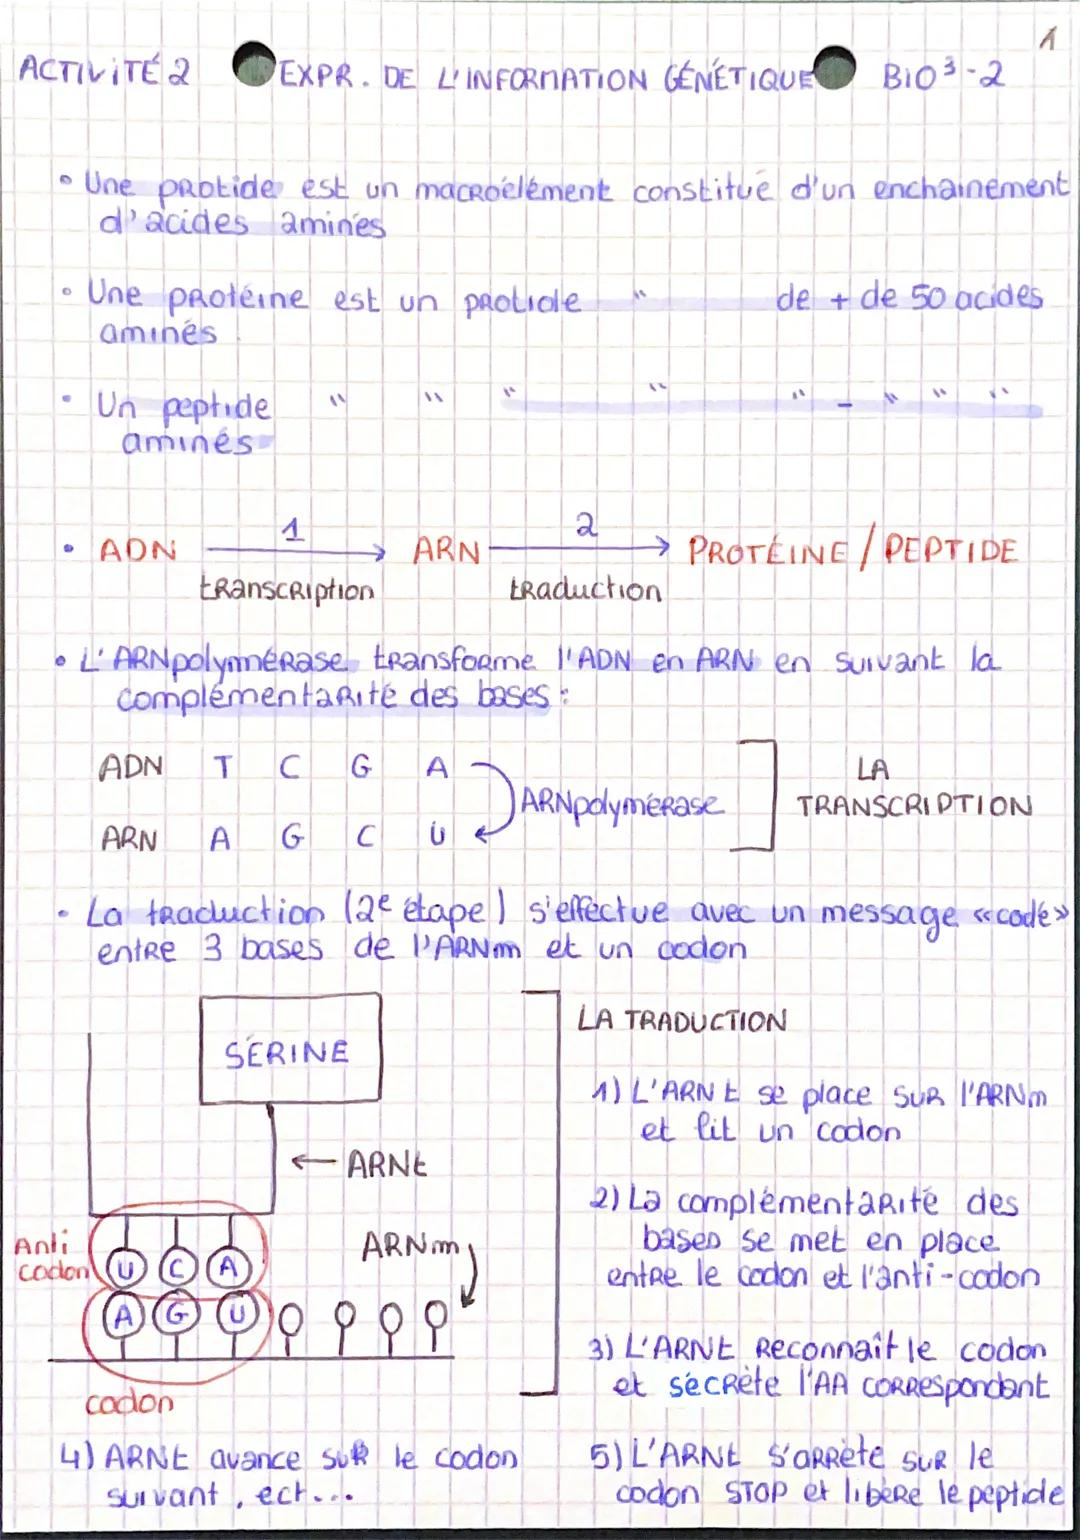 1
ACTIVITÉ 2 EXPR. DE L'INFORMATION GÉNÉTIQUE BIO³-2
• Une protide est un macroélément constitué d'un enchainement
d'acides aminés
• Une protéine est un protide " de + de 50 acides
aminés
• Un peptide " " " " " - " " "
aminés
• ADN 1 ARN 2 PROTÉINE / PEPTIDE
transcription traduction
• L'ARNpolymérase transforme l'ADN en ARN en suivant la
complémentarité des bases :
ADN T C G A
ARNpolymérase
LA
TRANSCRIPTION
ARN A G C U
• La traduction (2e étape) s'effectue avec un message «codé»
entre 3 bases de l'ARNm et un codon
SÉRINE
← ARNt
ARNm
Anti
codon
U C A
A G U
codon
LA TRADUCTION
1) L'ARNt se place sur l'ARNm
et lit un codon
2) La complémentarité des
bases se met en place
entre le codon et l'anti-codon
3) L'ARNt reconnaît le codon
et sécrète l'AA correspondant
4) ARNt avance sur le codon
suivant, ect...
5) L'ARNt s'arrête sur le
codon STOP et libère le peptide